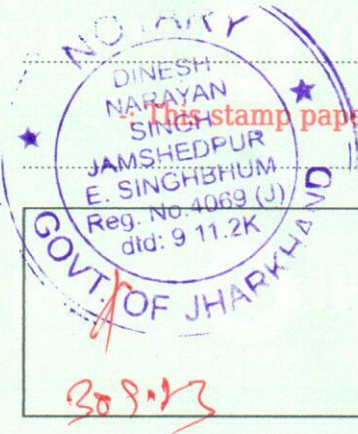 NOTARY
DINESH
NARAYAN
SINGH
JAMSHEDPUR
E. SINGHBHUM
Reg. No.4069 (J)
dtd: 9 11.2K
GOVT. OF JHARKHAND
:- This stamp pape